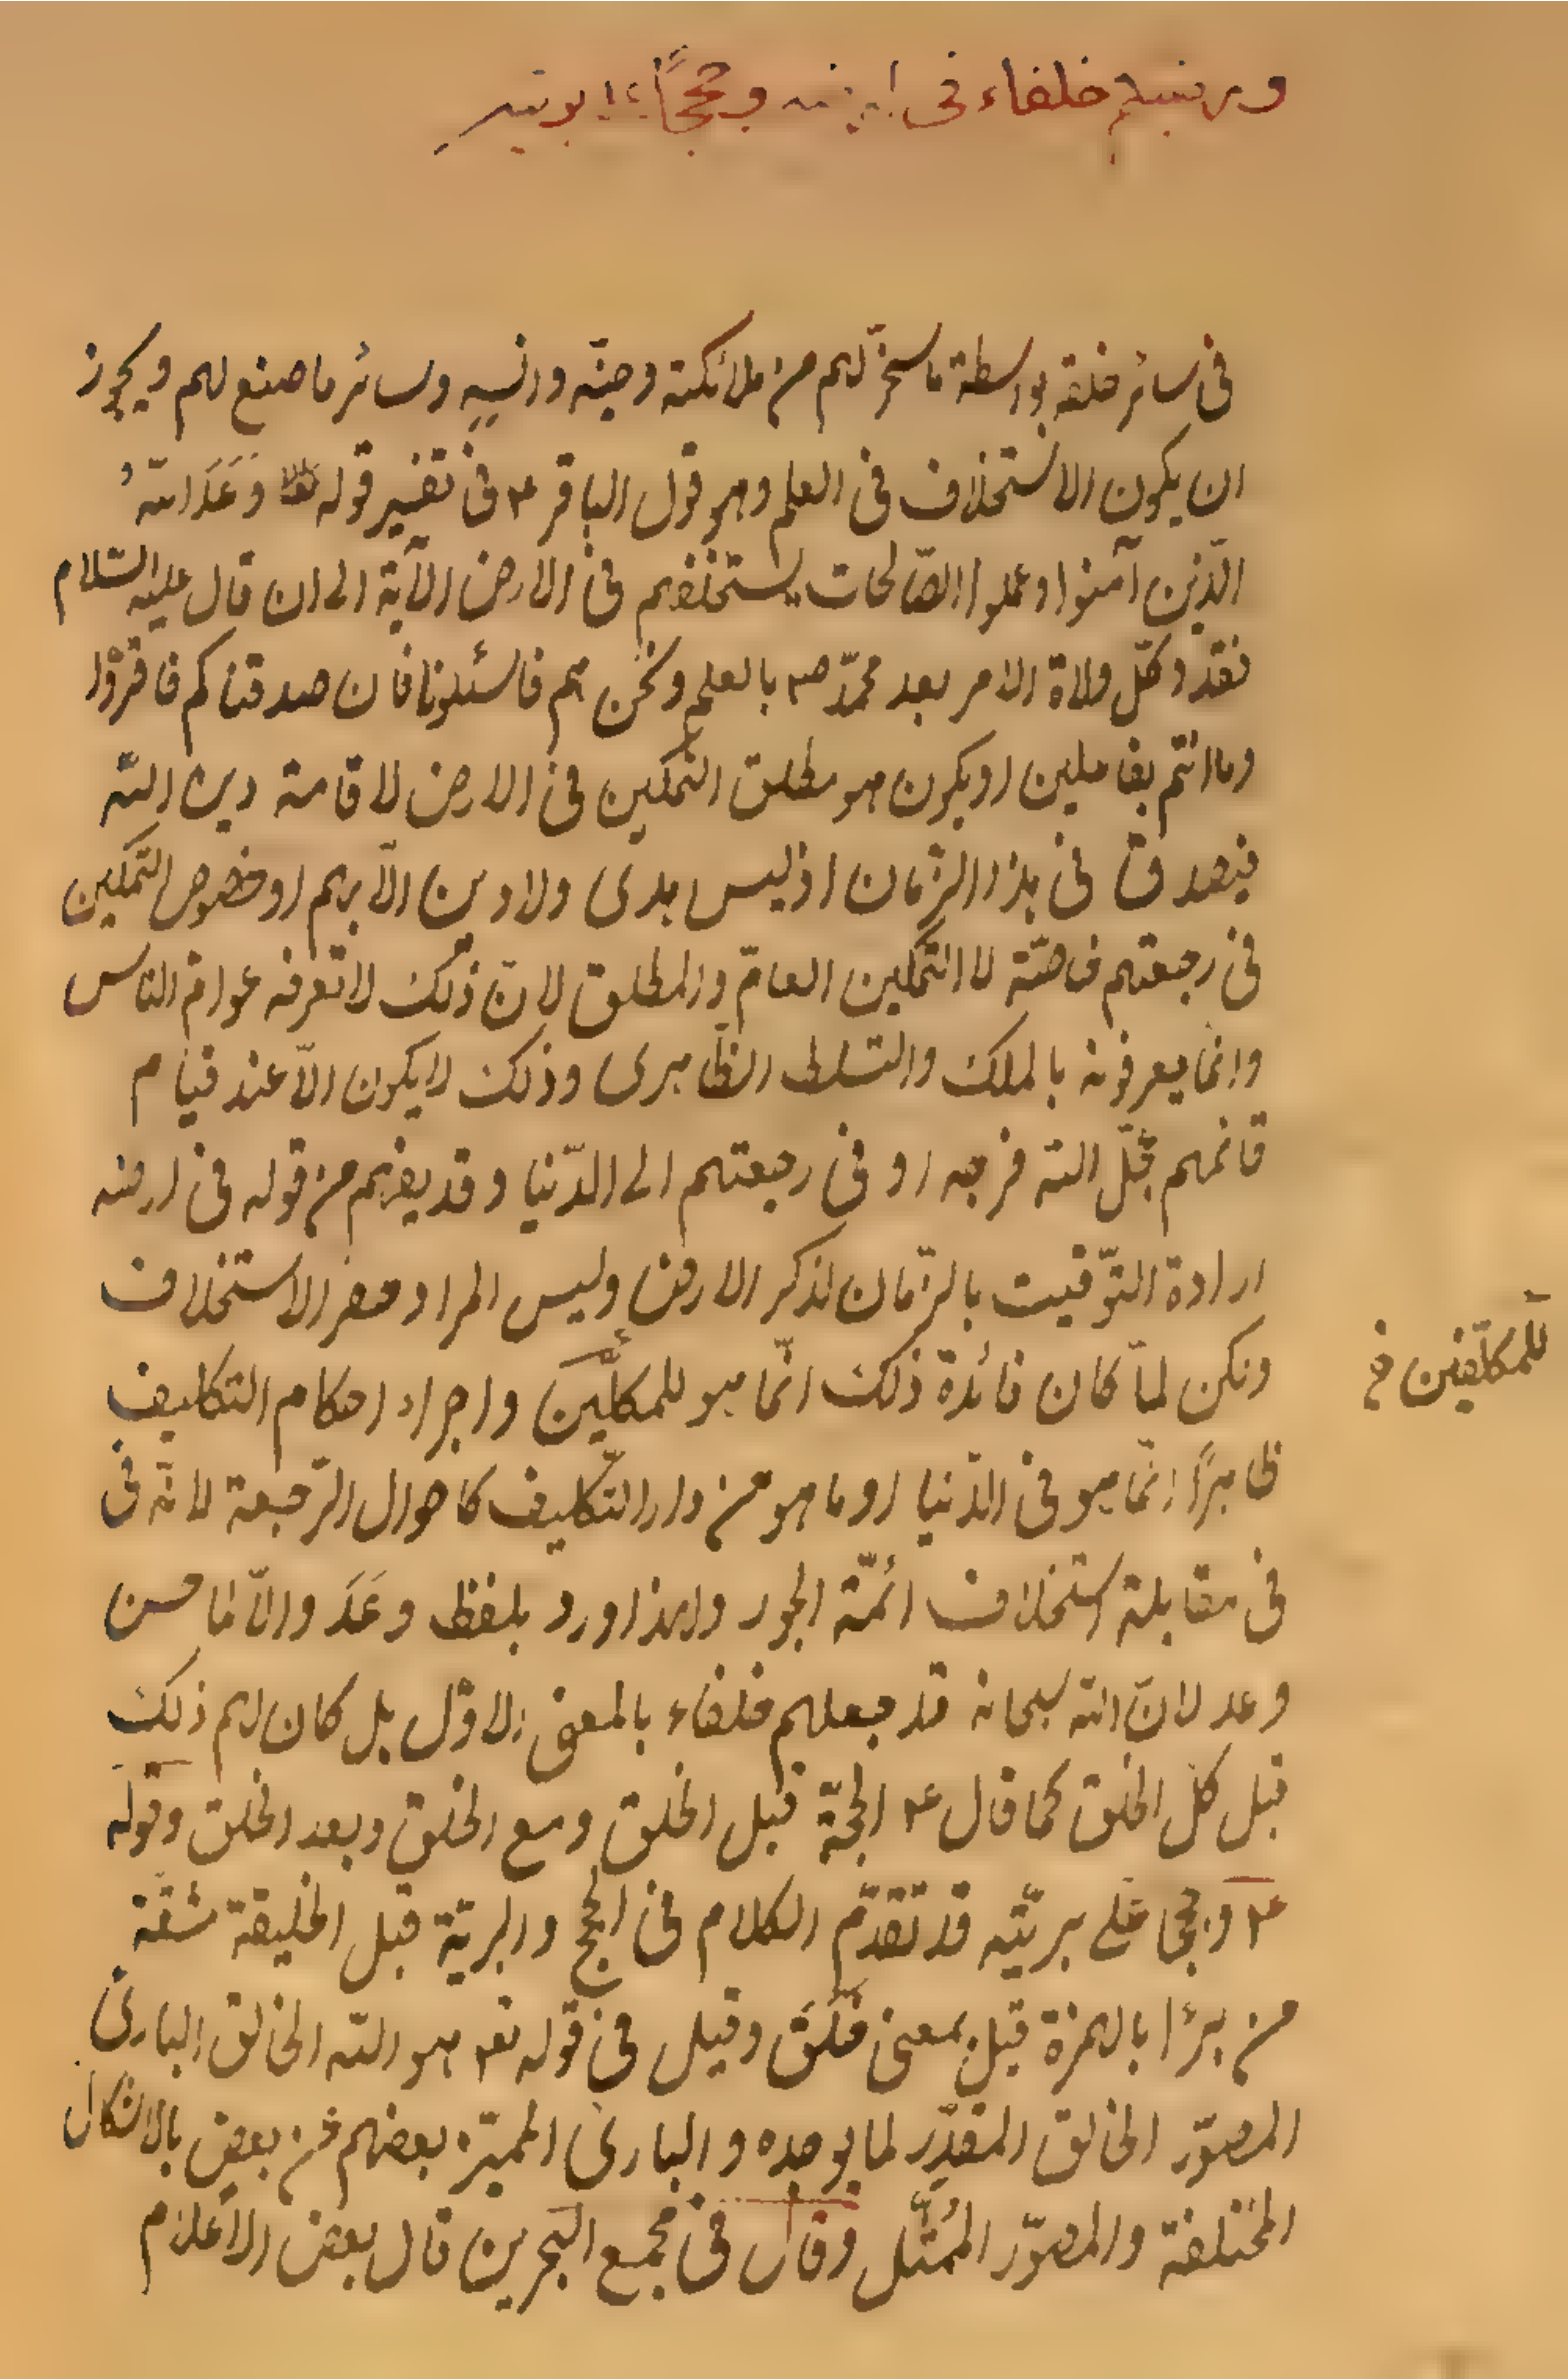 ورضيكم خلفاء فى ارضه وحججًا على بريته
فى سائر خلقه بواسطة ما سخّر لهم من ملائكته وجنّه وانسه وسائر ما صنع لهم ويجوز
ان يكون الاستخلاف فى العلم وهو قول الباقر ع فى تفسير قوله تعالى وَعَدَ اللّهُ
الّذين آمنوا وعملوا الصّالحات ليستخلفهم فى الارض الآية الى ان قال عليه السّلام
فقد وكّل ولاة الامر بعد محمّد ص بالعلم ونحن هم فاسئلونا فان صدقناكم فاقرّوا
وما انتم بفاعلين او يكون هو مطلق التّمكين فى الارض لاقامة دين اللّه
فيصدق فى هذا الزّمان اذ ليس هدى ولا دين الّا بهم او خصوص التّمكين
فى رجعتهم خاصّة لا التّمكين العامّ والمطلق لانّ ذلك لا تعرفه عوامّ النّاس
وانّما يعرفونه بالملك والتسلط الظّاهرى وذلك لا يكون الّا عند قيام
قائمهم عجّل اللّه فرجه او فى رجعتهم الى الدّنيا وقد يفهم من قوله فى ارضه
ارادة التّوقيت بالزّمان لذكر الارض وليس المراد حصر الاستخلاف
ولكن لمّا كان فائدة ذلك انّما هو للمكلّين واجراء احكام التكليف
للمكلّفين خ
ظاهرًا انّما هو فى الدّنيا او ما هو من دار التّكليف كاحوال الرّجعة لانّه فى
فى مقابلة استخلاف ائمّة الجور ولهذا ورد بلفظ وَعَدَ والّا لما حسن
وعد لانّ اللّه سبحانه قد جعلهم خلفاء بالمعنى الاوّل بل كان لهم ذلك
قبل كلّ الخلق كما قال ع الحجّة قبل الخلق ومع الخلق وبعد الخلق وقوله
ع وحججا على بريّته قد تقدّم الكلام فى الحجج والبريّة قبل الخليقة مشقّة
من برَأ بالهمزة قيل بمعنى خَلَقَ وقيل فى قوله تع هو اللّه الخالق البارئ
المصوّر الخالق المقدِّر لما يوجده والبارئ المميّز بعضهم من بعض بالاشكال
المختلفة والمصوّر المُمَثِّل وقال فى مجمع البحرين قال بعض الاعلام